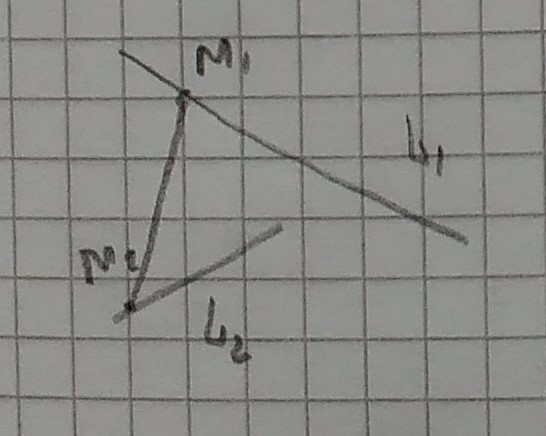 M₁
L₁
M₂
L₂